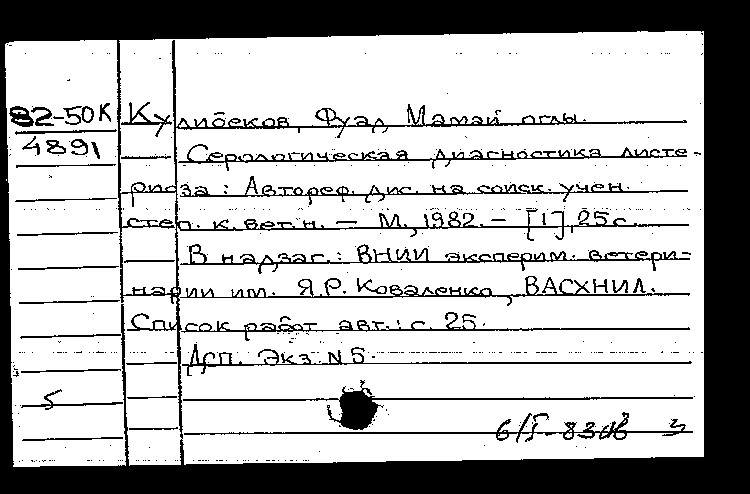 82-50К
4891
Кулибеков, Фуад Мамай оглы.
Серологическая диагностика листе-
риоза : Автореф. дис. на соиск. учен.
степ. к. вет. н. — М., 1982. — [1], 25 с.
В надзаг.: ВНИИ эксперим. ветери-
нарии им. Я.Р. Коваленко, ВАСХНИЛ.
Список работ авт.: с. 25.
Дсп. Экз. N 5.
5
6/I-83